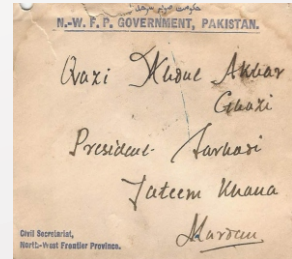 حکومت صوبہ سرحد
N.-W. F. P. GOVERNMENT, PAKISTAN.
Qazi Abdul Akbar
Ghazi
President Sarhadi
Yateem Khana
Mardan
Civil Secretariat,
North-West Frontier Province.